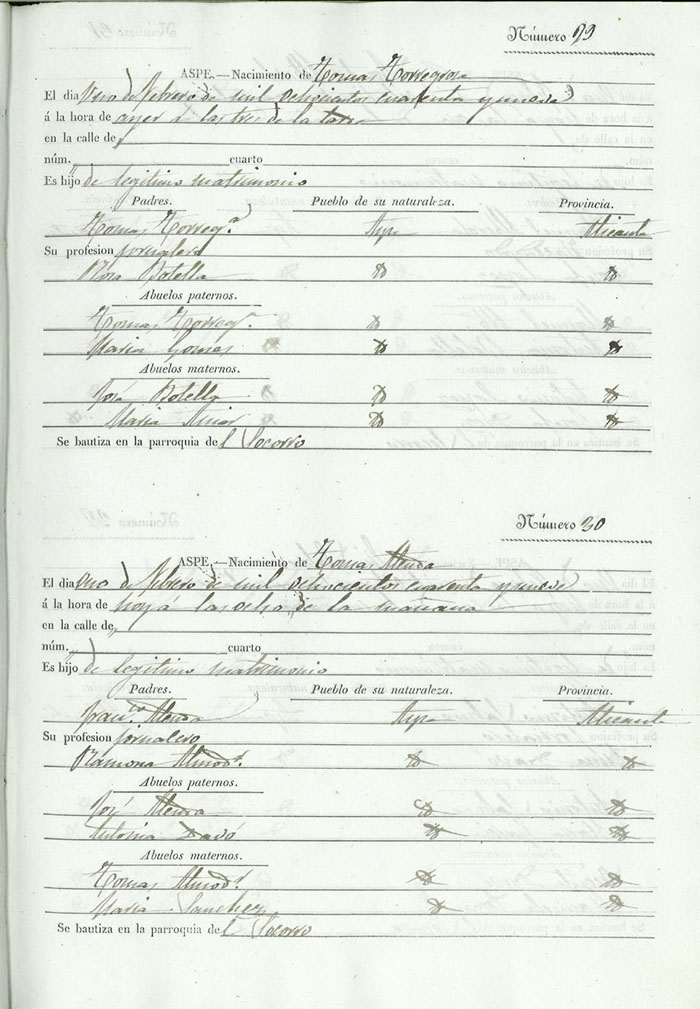 Número 29
ASPE.—Nacimiento de Tomas Torregrosa
El dia Uno de Febrero de mil ochocientos cuarenta y nueve
á la hora de ayer á las tres de la tarde
en la calle de
núm. cuarto
Es hijo de legitimo matrimonio
Padres. Pueblo de su naturaleza. Provincia.
Tomas Torreg.ª Aspe Alicante
Su profesion jornalero
Rosa Botella
Abuelos paternos.
Tomas Torreg.ª
Maria Gomes
Abuelos maternos.
José Botella
Maria
Se bautiza en la parroquia del Socorro
Número 30
ASPE.—Nacimiento de Tomas
El dia uno de Febrero de mil ochocientos cuarenta y nueve
á la hora de hoy á las ocho de la mañana
en la calle de
núm. cuarto
Es hijo de legitimo matrimonio
Padres. Pueblo de su naturaleza. Provincia.
Fran.co Aspe Alicante
Su profesion jornalero
Ramona Almod.r
Abuelos paternos.
José
Antonia Pavó
Abuelos maternos.
Tomas Almod.r
Maria Sanchez
Se bautiza en la parroquia del Socorro